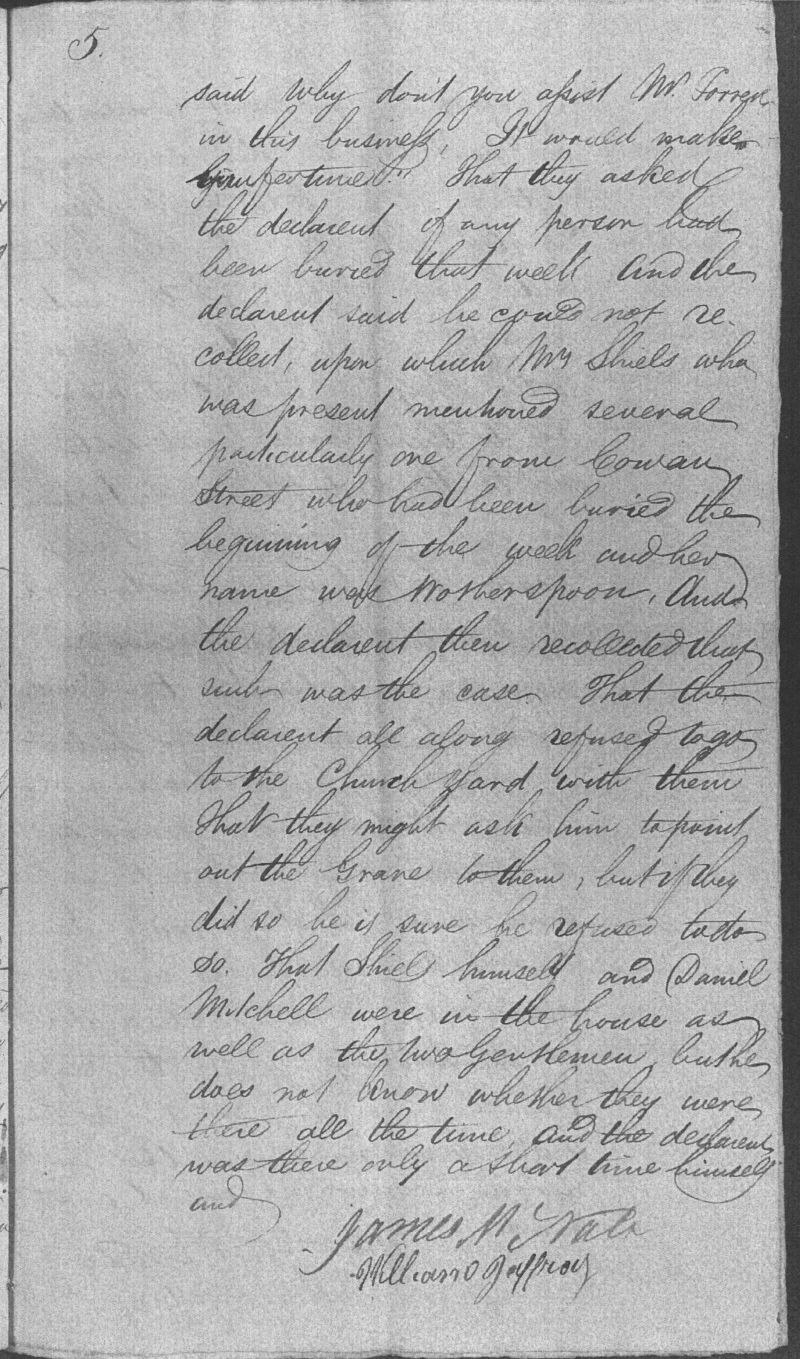 5.
said Why don't you assist Mr. Forrest
in this business, It would make
your fortune?" That they asked
the declarent if any person had
been buried that week and the
declarent said he could not re-
collect, upon which Mrs Shiels who
was present mentioned several
particularly one from Cowan
Street who had been buried the
beginning of the week and her
name was Wotherspoon, And
the declarent then recollected that
such was the case That the
declarent all along refused to go
to the Church Yard with them
That they might ask him to point
out the Grave to them, but if they
did so he is sure he refused to do
so. That Shiels himself and Daniel
Mitchell were in the house as
well as the two Gentlemen, but he
does not know whether they were
there all the time, and the declarent
was there only a short time himself
and
James McNab
William Jaffray